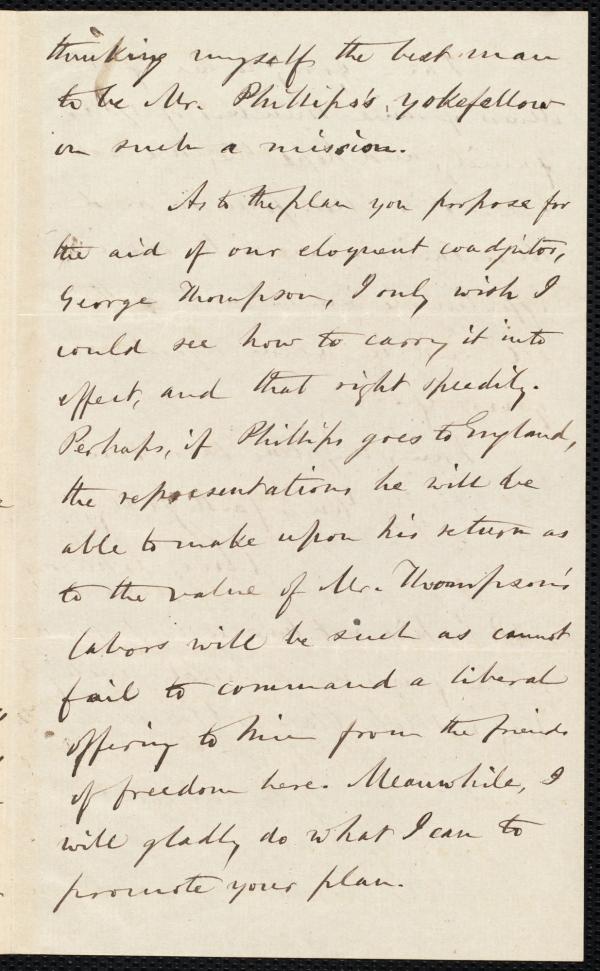 thinking myself the best man
to be Mr. Phillips's yokefellow
on such a mission.
As to the plan you propose for
the aid of our eloquent coadjutor,
George Thompson, I only wish I
could see how to carry it into
effect, and that right speedily.
Perhaps, if Phillips goes to England,
the representations he will be
able to make upon his return as
to the value of Mr. Thompson's
labors will be such as cannot
fail to command a liberal
offering to him from the friends
of freedom here. Meanwhile, I
will gladly do what I can to
promote your plan.